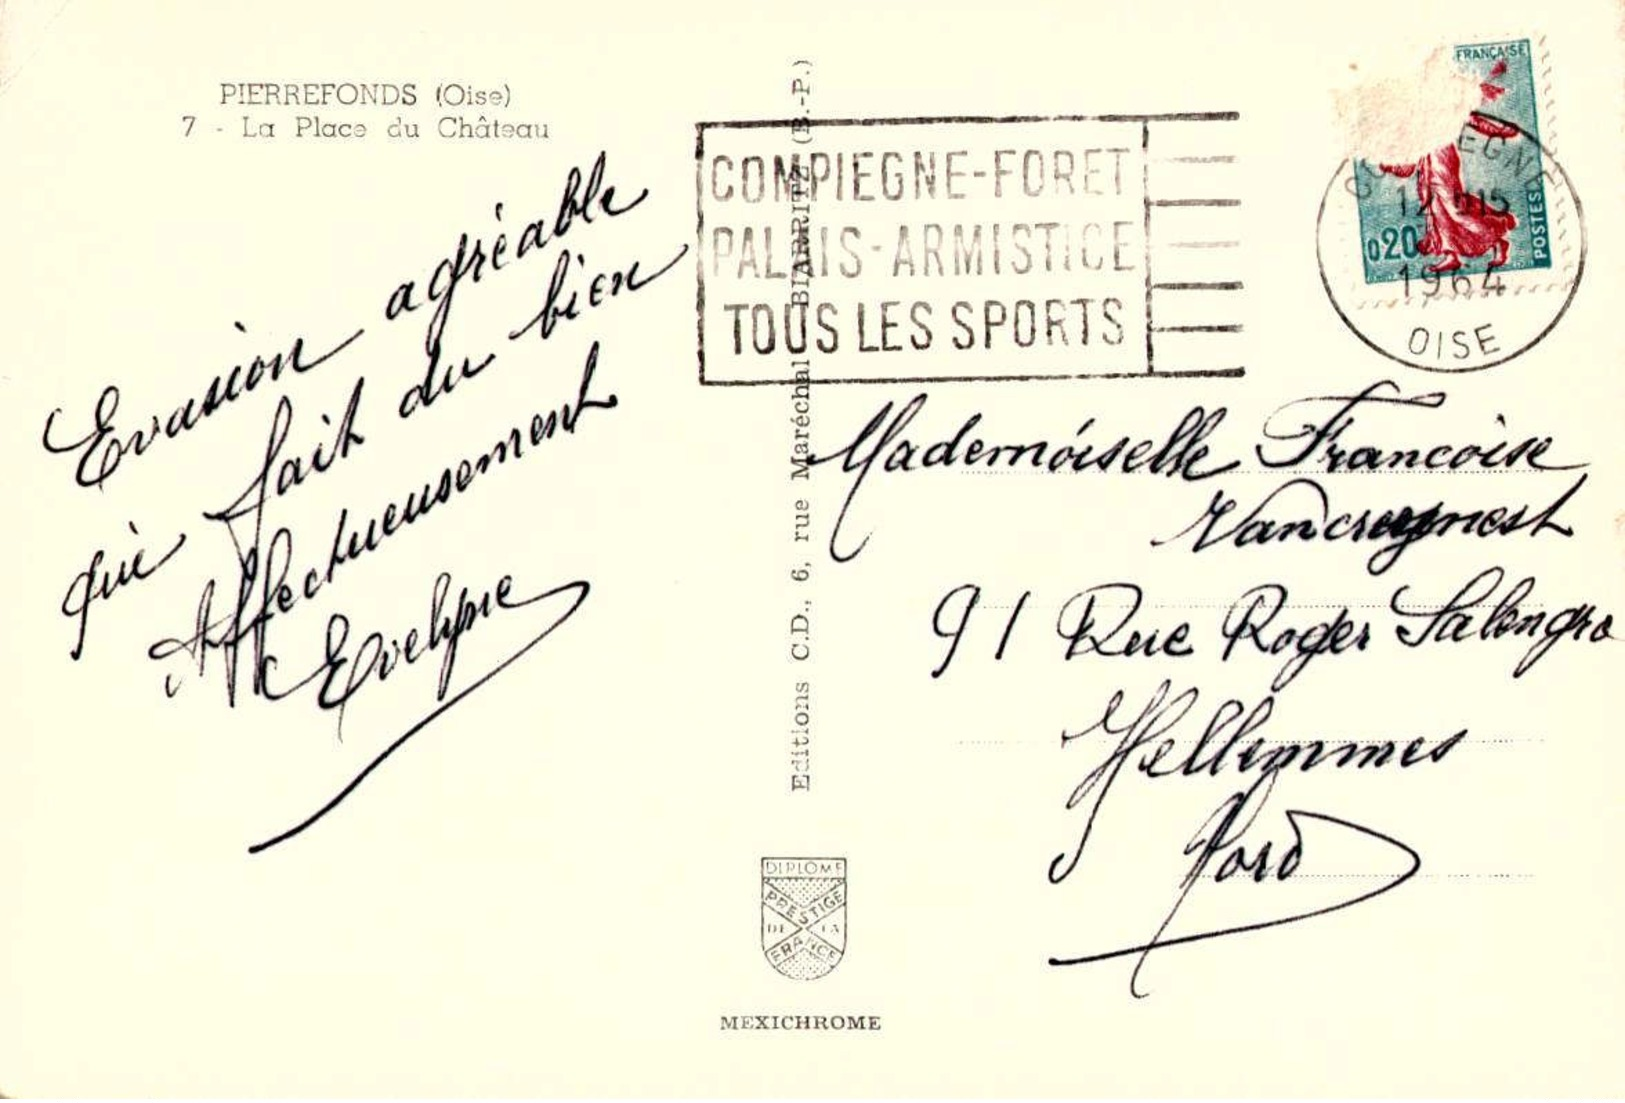 PIERREFONDS (Oise)
7 - La Place du Château
Evasion agréable
qui fait du bien
Affectueusement
Evelyne
Editions C.D., 6, rue Maréchal BIARRITZ (B.-P.)
DIPLOME
PRESTIGE
DE LA
FRANCE
MEXICHROME
COMPIEGNE-FORET
PALAIS-ARMISTICE
TOUS LES SPORTS
FRANÇAISE
0,20
POSTES
1964
OISE
Mademoiselle Francoise
91 Rue Roger Salengro
Hellemmes
Nord